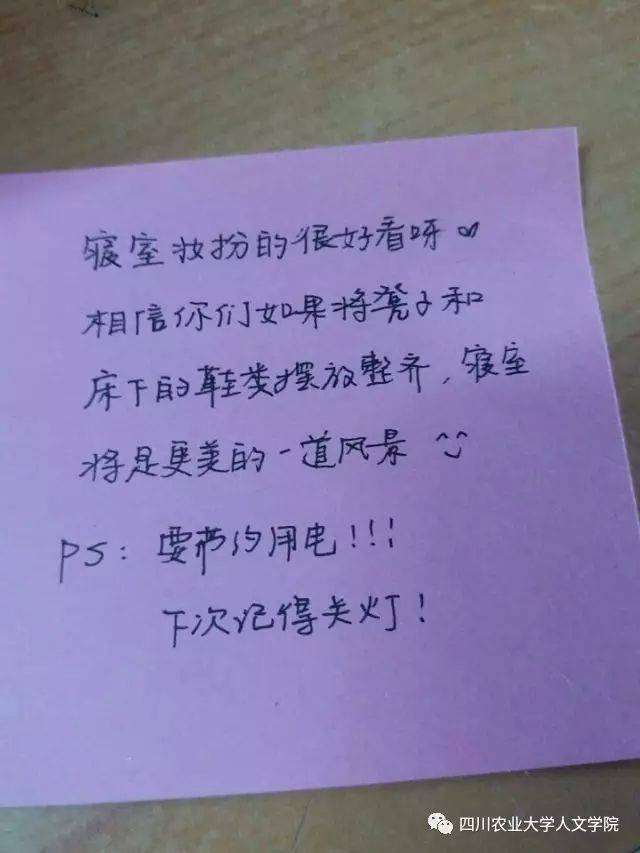 寝室妆扮的很好看呀♡
相信你们如果将凳子和
床下的鞋类摆放整齐，寝室
将是更美的一道风景
PS：要节约用电!!!
下次记得关灯!
四川农业大学人文学院